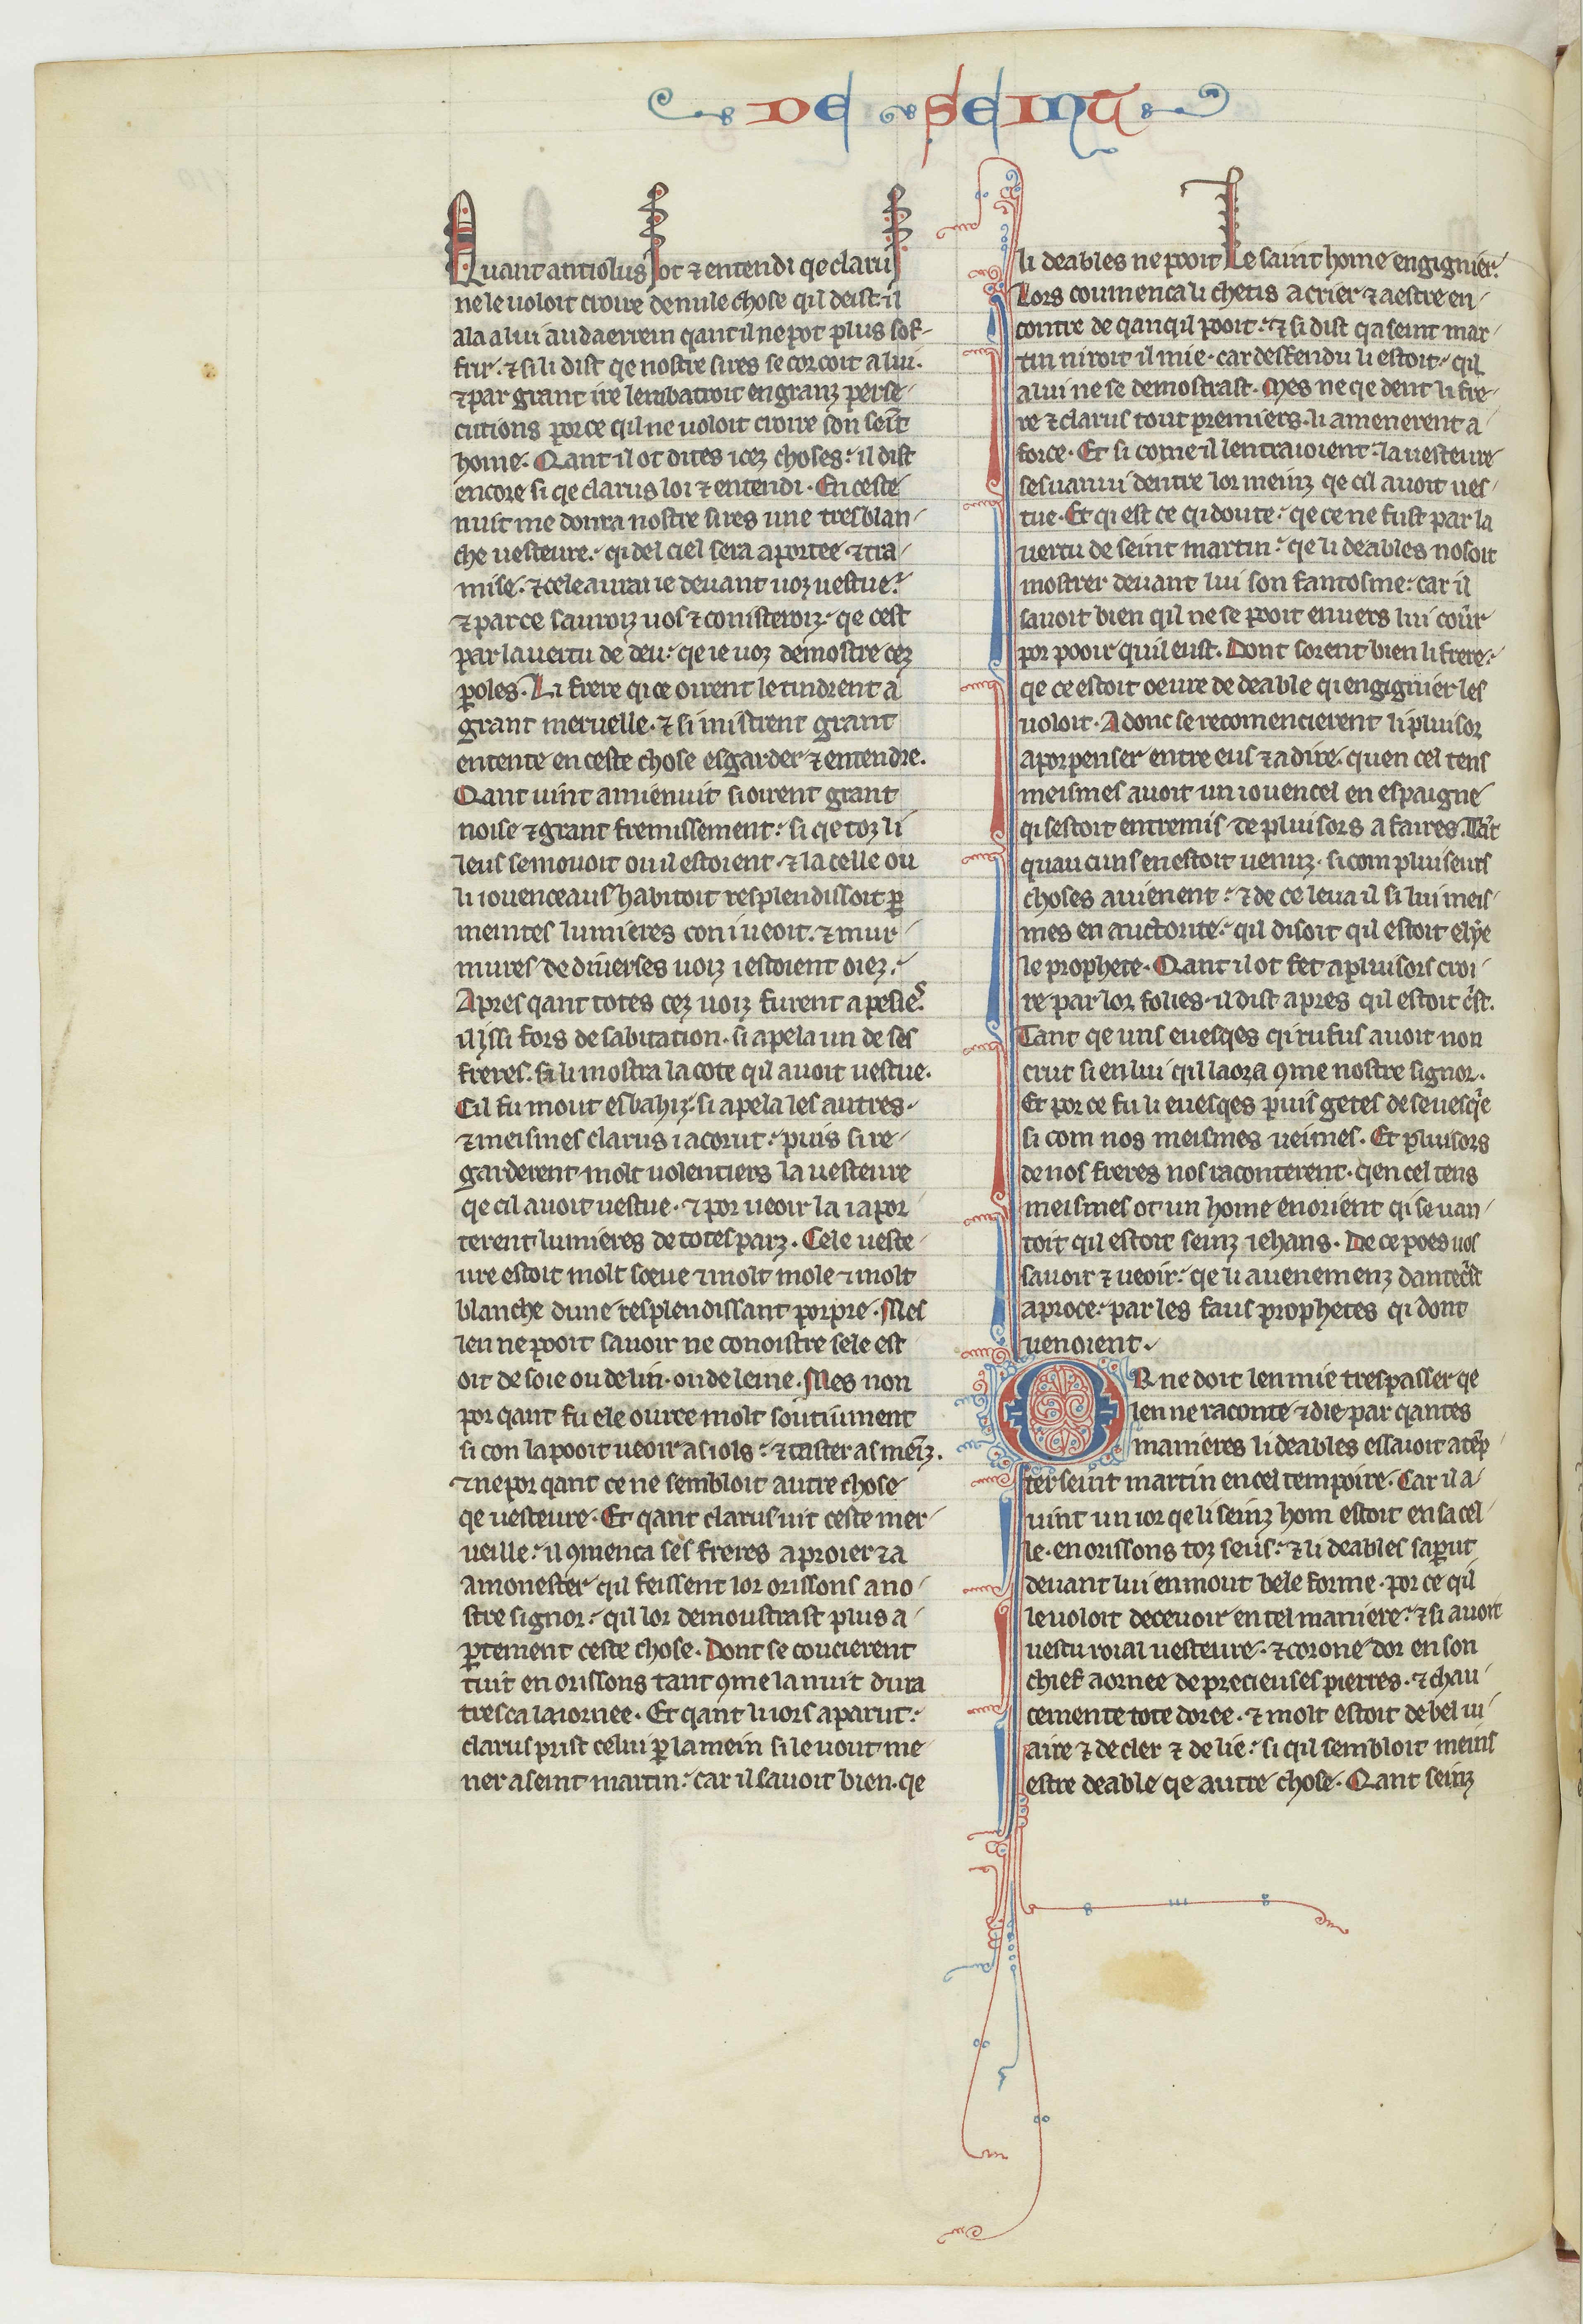 DE SEINT
Quant antiolus lot ⁊ entendi qe clarus
ne le uoloit croire de nule chose qil deist il
ala a lui au daerrein qant il ne pot plus sof-
frir. ⁊ si li dist qe nostre sires se corcoit a lui.
⁊ par grant ire lenbatroit en granz perse-
cutions por ce qil ne uoloit croire son seīt
home. Qant il ot dites icez choses. il dist
encore si qe clarus loi ⁊ entendi. En ceste
nuit me donra nostre sires une tresblan-
che uesteure. qi del ciel sera aportee ⁊ tra-
mise. ⁊ cele aurai ie deuant uoz uestue.
⁊ par ce sauroiz uos ⁊ conisteroiz. qe cest
par la uertu de deu. qe ie uoz demostre cez
ꝑoles. Li frere qi ce oirent le tindrent a
grant meruelle. ⁊ si mistrent grant
entente en ceste chose esgarder ⁊ entendre.
Qant uint a mienuit si oirent grant
noise ⁊ grant fremissement. si qe toz li
leus se mouoit ou il estoient. ⁊ la celle ou
li iouenceaus habitoit resplendissoit ꝑ
meintes lumieres con i ueoit. ⁊ mur-
mures de diuerses uoiz i estoient oiez.
Apres qant totes cez uoiz furent apesieˢ
il issi fors de sabitation. si apela un de ses
freres. si li mostra la cote qil auoit uestue.
Cil fu mout esbahiz. si apela les autres.
⁊ meismes clarus i acorut. puis si re-
garderent molt uolentiers la uesteure
qe cil auoit uestue. ⁊ por ueoir la i apor-
terent lumieres de totes parz. Cele ueste-
ure estoit molt soeue ⁊ molt mole ⁊ molt
blanche dune resplendissant porpre. Mes
len ne pooit sauoir ne conoistre sele est
oit de soie ou de lin. ou de leine. Mes non
por qant fu ele ouree molt soutiument
si con la pooit ueoir as iols. ⁊ taster as meīz.
⁊ ne por qant ce ne sembloit autre chose
qe uesteure. Et qant clarus uit ceste mer-
ueille. il ꝯmenca ses freres a proier ⁊ a
amonester qil feissent lor orissons a no-
stre signor. qil lor demoustrast plus a-
ꝑtement ceste chose. Dont se coucierent
tuit en orissons tant ꝯme la nuit dura
tresca la iornee. Et qant li iors aparut.
clarus prist celui ꝑ la mein si le uout me-
ner a seint martin. car il sauoit bien. qe
li deables ne pooit le saint home engignier.
Lors coumenca li chetis a crier ⁊ a estre en-
contre de qanqil pooit. ⁊ si dist qa seint mar-
tin niroit il mie. car desfendu li estoit. qil
a lui ne se demostrast. Mes ne qe dent li fre-
re ⁊ clarus tout premiers. li amenerent a
force. Et si come il lentraioient. la uesteure
sesuanui dentre lor meinz qe cil auoit ues-
tue. Et qi est ce qi doute. qe ce ne fust par la
uertu de seint martin. qe li deables nosoit
mostrer deuant lui son fantosme. car il
sauoit bien qil ne se pooit enuers lui coūr
por pooir quil eust. Dont sorent bien li frere.
qe ce estoit oeure de deable qi engignier les
uoloit. Adonc se recomencierent li pluisor
a porpenser entre eus ⁊ a dire. quen cel tens
meismes auoit un iouencel en espaigne
qi sestoit entremis de pluisors afaires. Tāt
quau cuns en estoit ueniz. si com pluiseurs
choses auienent. ⁊ de ce leua il si lui meis-
mes en auctorite. qil disoit qil estoit elye
le prophete. Qant il ot fet a pluisors croi-
re par lor folies. il dist apres qil estoit cͬst.
Tant qe uns euesqes qi rufus auoit non
crut si en lui qil laora ꝯme nostre signor.
Et por ce fu li euesqes puis getes de seuesqͥe
si com nos meismes ueimes. Et pluisors
de nos freres nos raconterent. qen cel tens
meismes ot un home en orient qi se uan-
toit qil estoit seinz iehans. De ce poes uos
sauoit ⁊ ueoir. qe li auenemenz dantecͬst
aproce. par les faus prophetes qi dont
uenoient.
OR ne doit len mie trespasser qe
len ne raconte ⁊ die par qantes
manieres li deables essaioit a tēp
ter seint martin en cel tempoire. Car il a-
uint un ior qe li seinz hom estoit en sa cel-
le. en orissons toz seus. ⁊ li deables saparut
deuant lui en mout bele forme. por ce qil
le uoloit deceuoir en tel maniere. ⁊ si auoit
uestu roial uesteure. ⁊ corone dor en son
chief aornee de precieuses pierres. ⁊ chau-
cemente tote doree. ⁊ molt estoit de bel ui-
aire ⁊ de cler ⁊ de lie. si qil sembloit meins
estre deable qe autre chose. Qant seinz